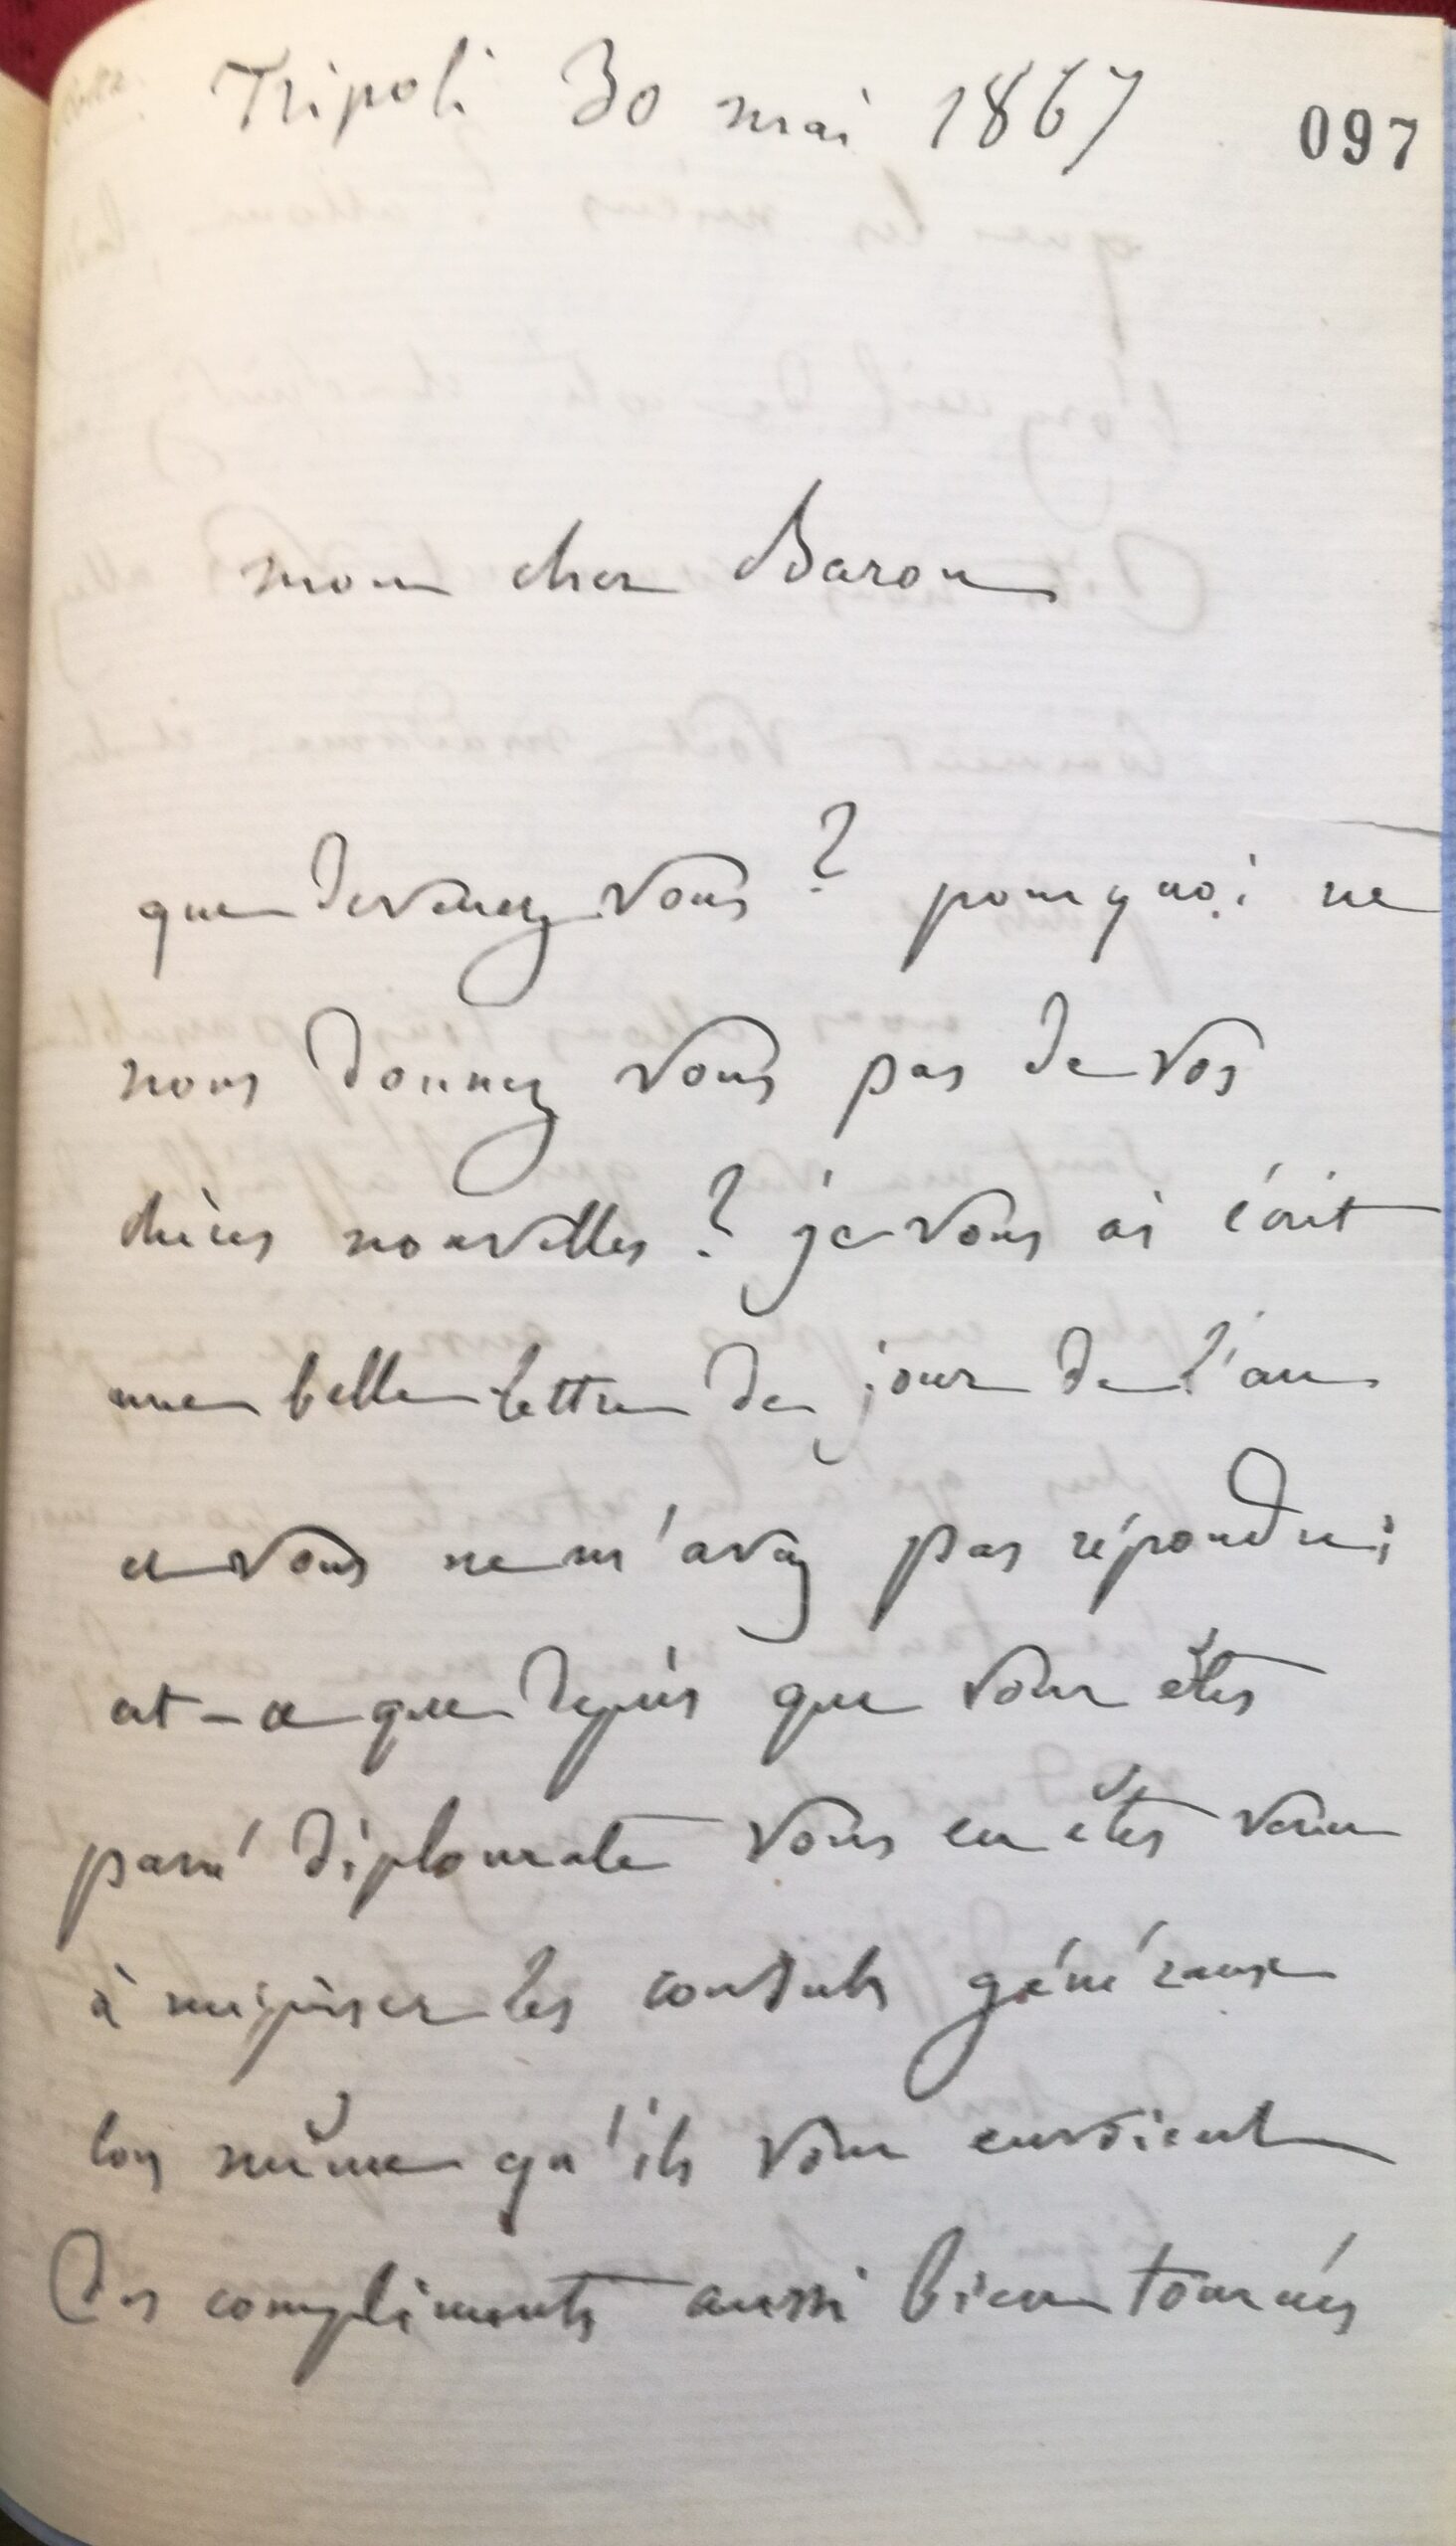 Tripoli 30 mai 1867
097
mon cher Baron
que devenez vous ? pourquoi ne
nous donnez vous pas de vos
chères nouvelles ? je vous ai écrit
une belle lettre de jour de l'an
et vous ne m'avez pas répondu ;
est-ce que depuis que vous êtes
passé diplomate vous en êtes venu
à mépriser les consuls généraux
lors même qu'ils vous envoient
des compliments aussi bien tournés